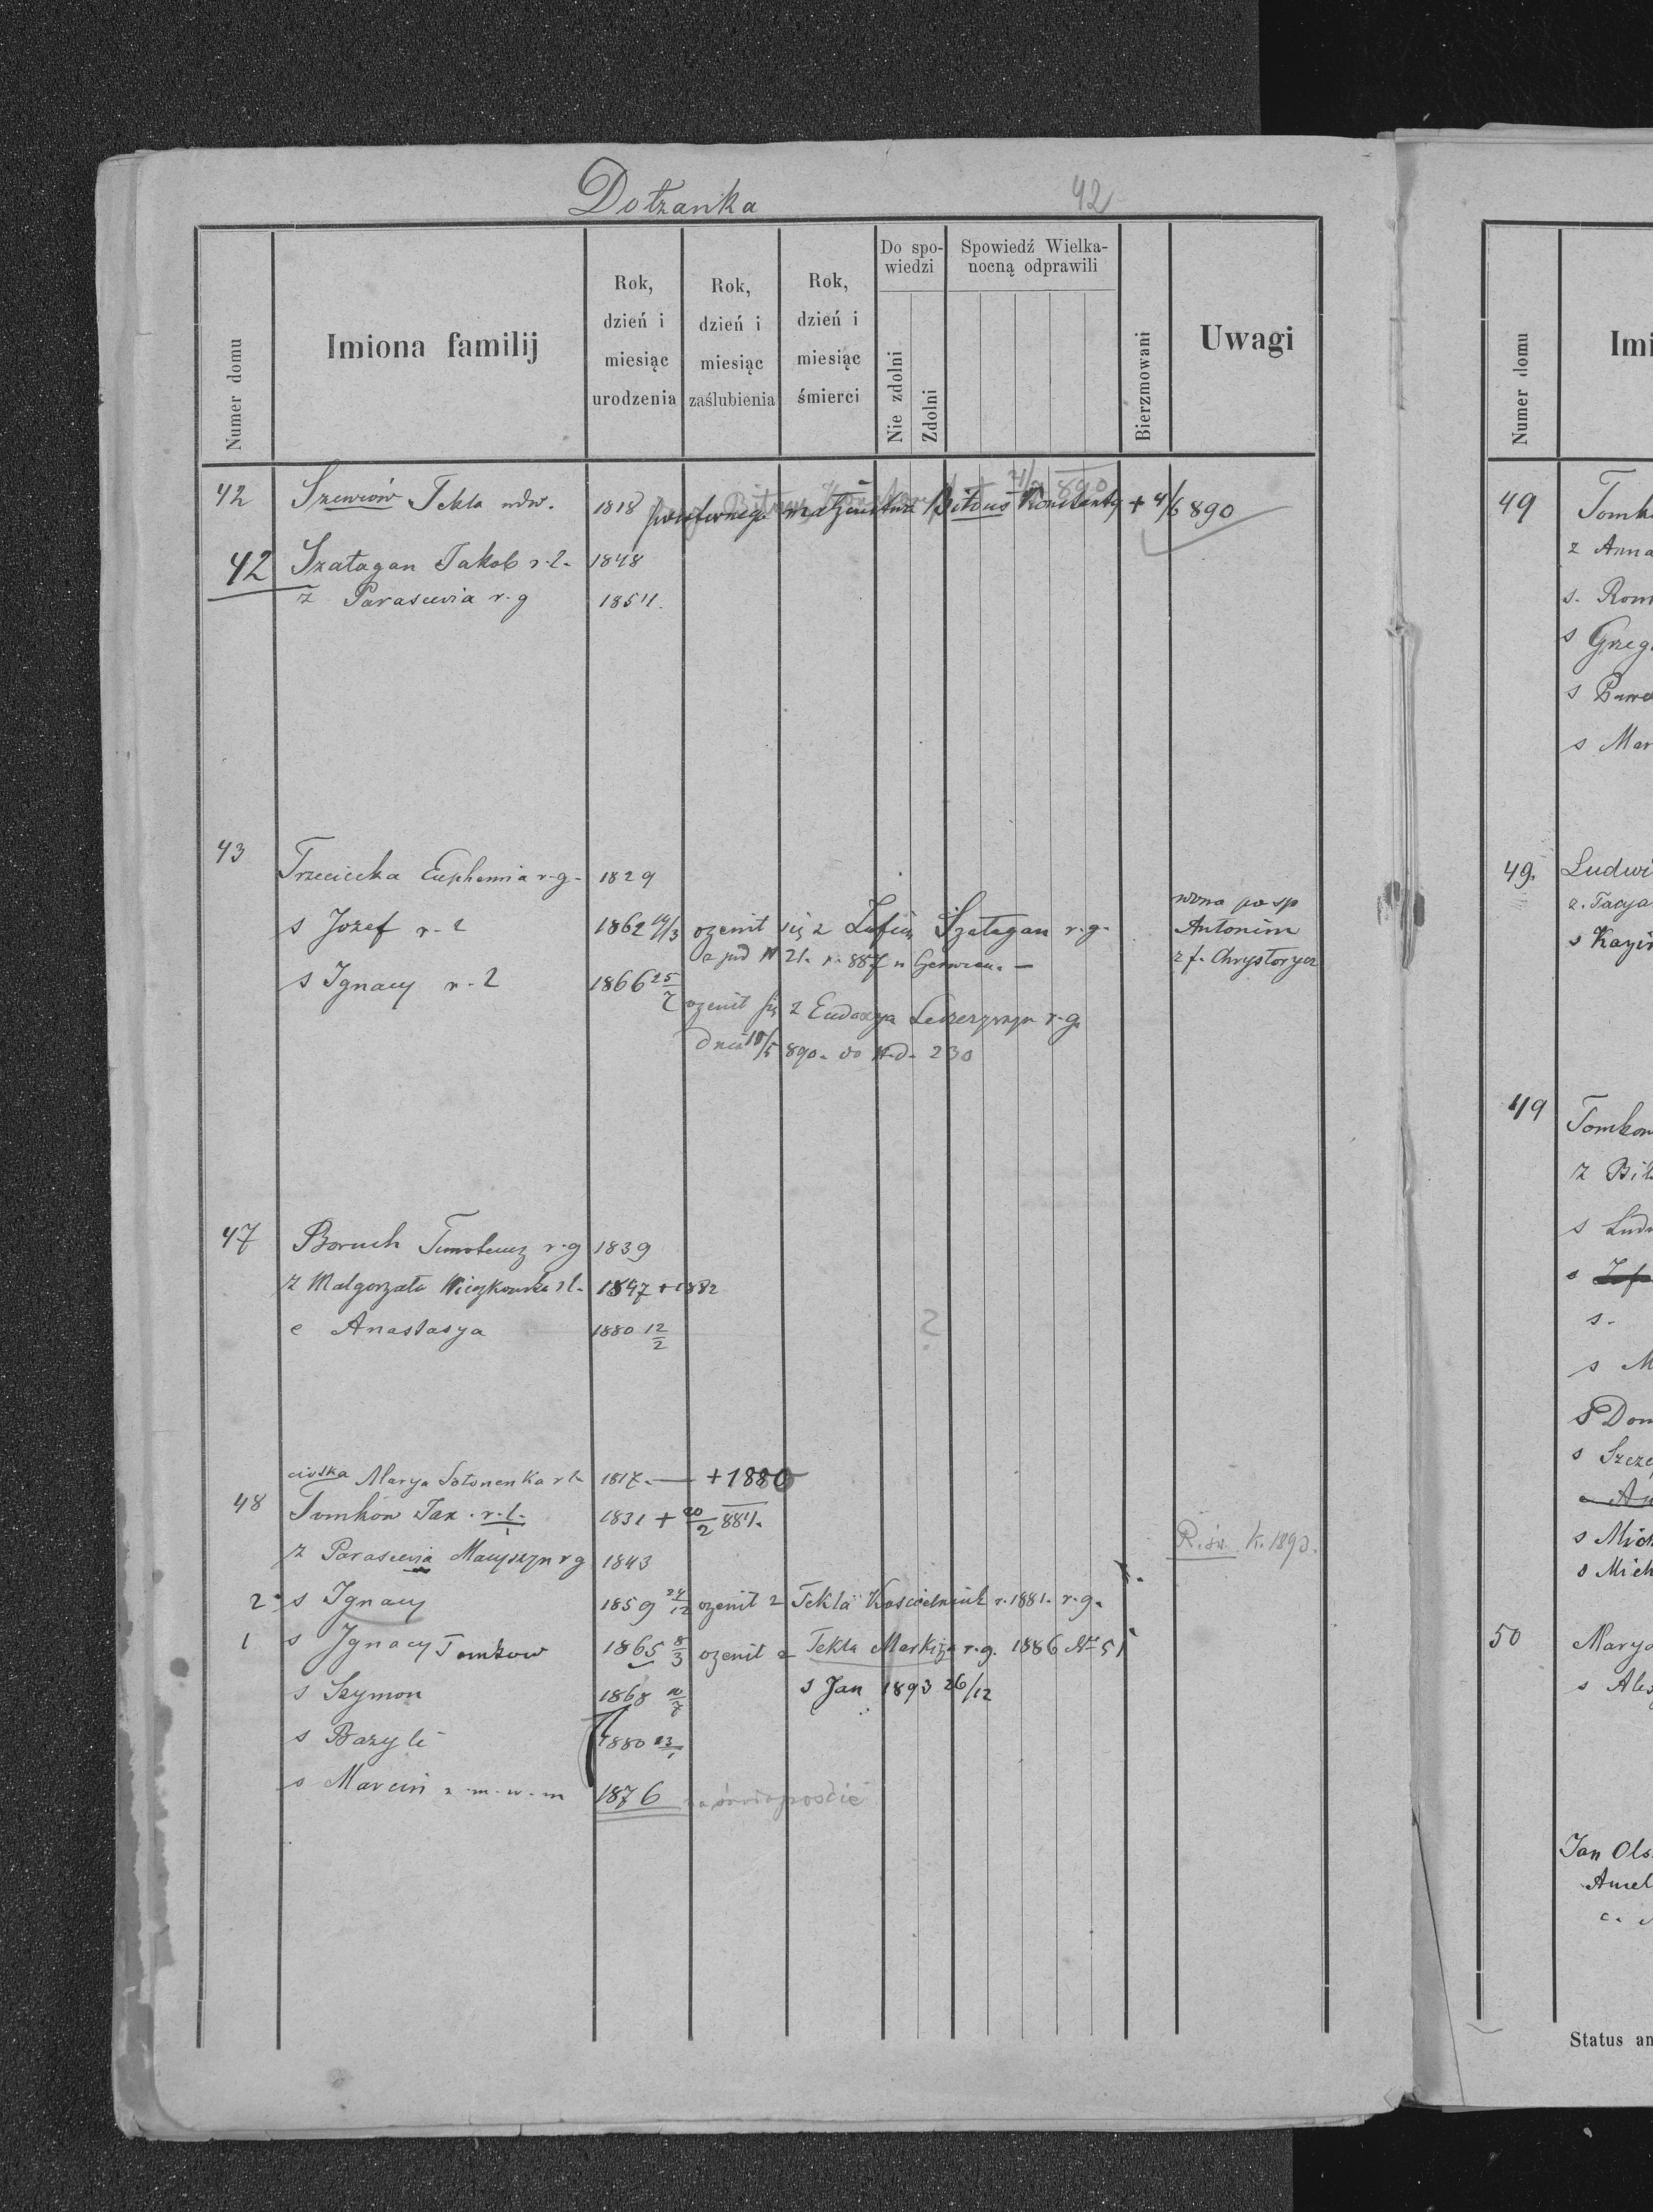 Dołzanka 42
Numer domu
Imiona familij
Rok, dzień i miesiąc urodzenia
Rok, dzień i miesiąc zaślubienia
Rok, dzień i miesiąc śmierci
Do spo-
wiedzi
Nie zdolni
Zdolni
Spowiedź Wielka-
nocną odprawili
Bierzmowani
Uwagi
42 Szewciów Tekla wdw. 1818 małżeństwa Bitous Konstanty + 4/6 890
42 Szatagan Jakob r. l. 1848
z Parascevia r. g 1854.
43 Trzeciecka Euphemia r. g. 1829
wdwa po sp
s Jozef r. l 1862 19/3 ozenił się z Zofią Szatagan r. g. Antonim
z pod N 21. r. 887 z f. Chrystorycz
s Ignacy r. l 1866 25/7 ozenił się z Eudoxya r. g.
dnia 18/5 890. do N. d. 230
47 Boruch Tymoteusz r. g 1839
z Małgorzata Wieczkowska r l. 1847 + 1882
c Anastasya 1880 12/2 ?
ciotka Marya Sotonenka r l. 1817. — + 1880
48 Tomków Jan . r. l. 1831 + 20/2 884.
R. św. k. 1893.
z Parascevia Macyszyn r g 1843
2. s Ignacy 1859 24/12 ozenił z Tekla Koscielniuk r. 1881. r. g.
1 s Ignacy Tomkow 1865 8/3 ozenił z Tekla Markiza r. g. 1886 No 51
s Szymon 1868 10/7 s Jan 1893 26/12
s Bazyli 1880 13/1
s Marcin z. m. w. m 1876
49 Tomk
z Anna
s. Rom
s Grzeg
s Pawe
s Mar
49. Ludwi
z. Tacya
s Kazi
49 Tomkow
z Bit
s Ludw
s.
s M
s Dom
s Szcze
s Mich
s Mich
50 Marya
s Alex
Jan Ols
Amel
c.
Numer domu
Imi
Status an